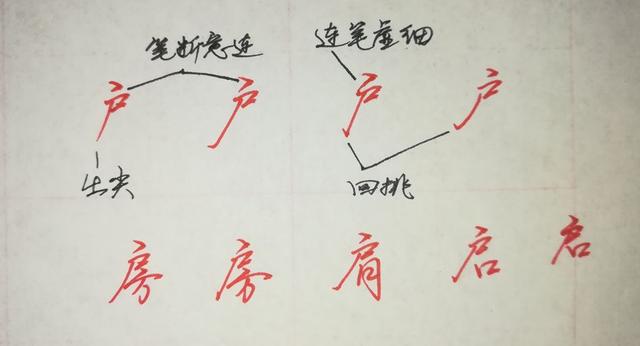 笔断意连 连笔虚细
户 户 户 户
出尖 回挑
房 房 肩 启 启